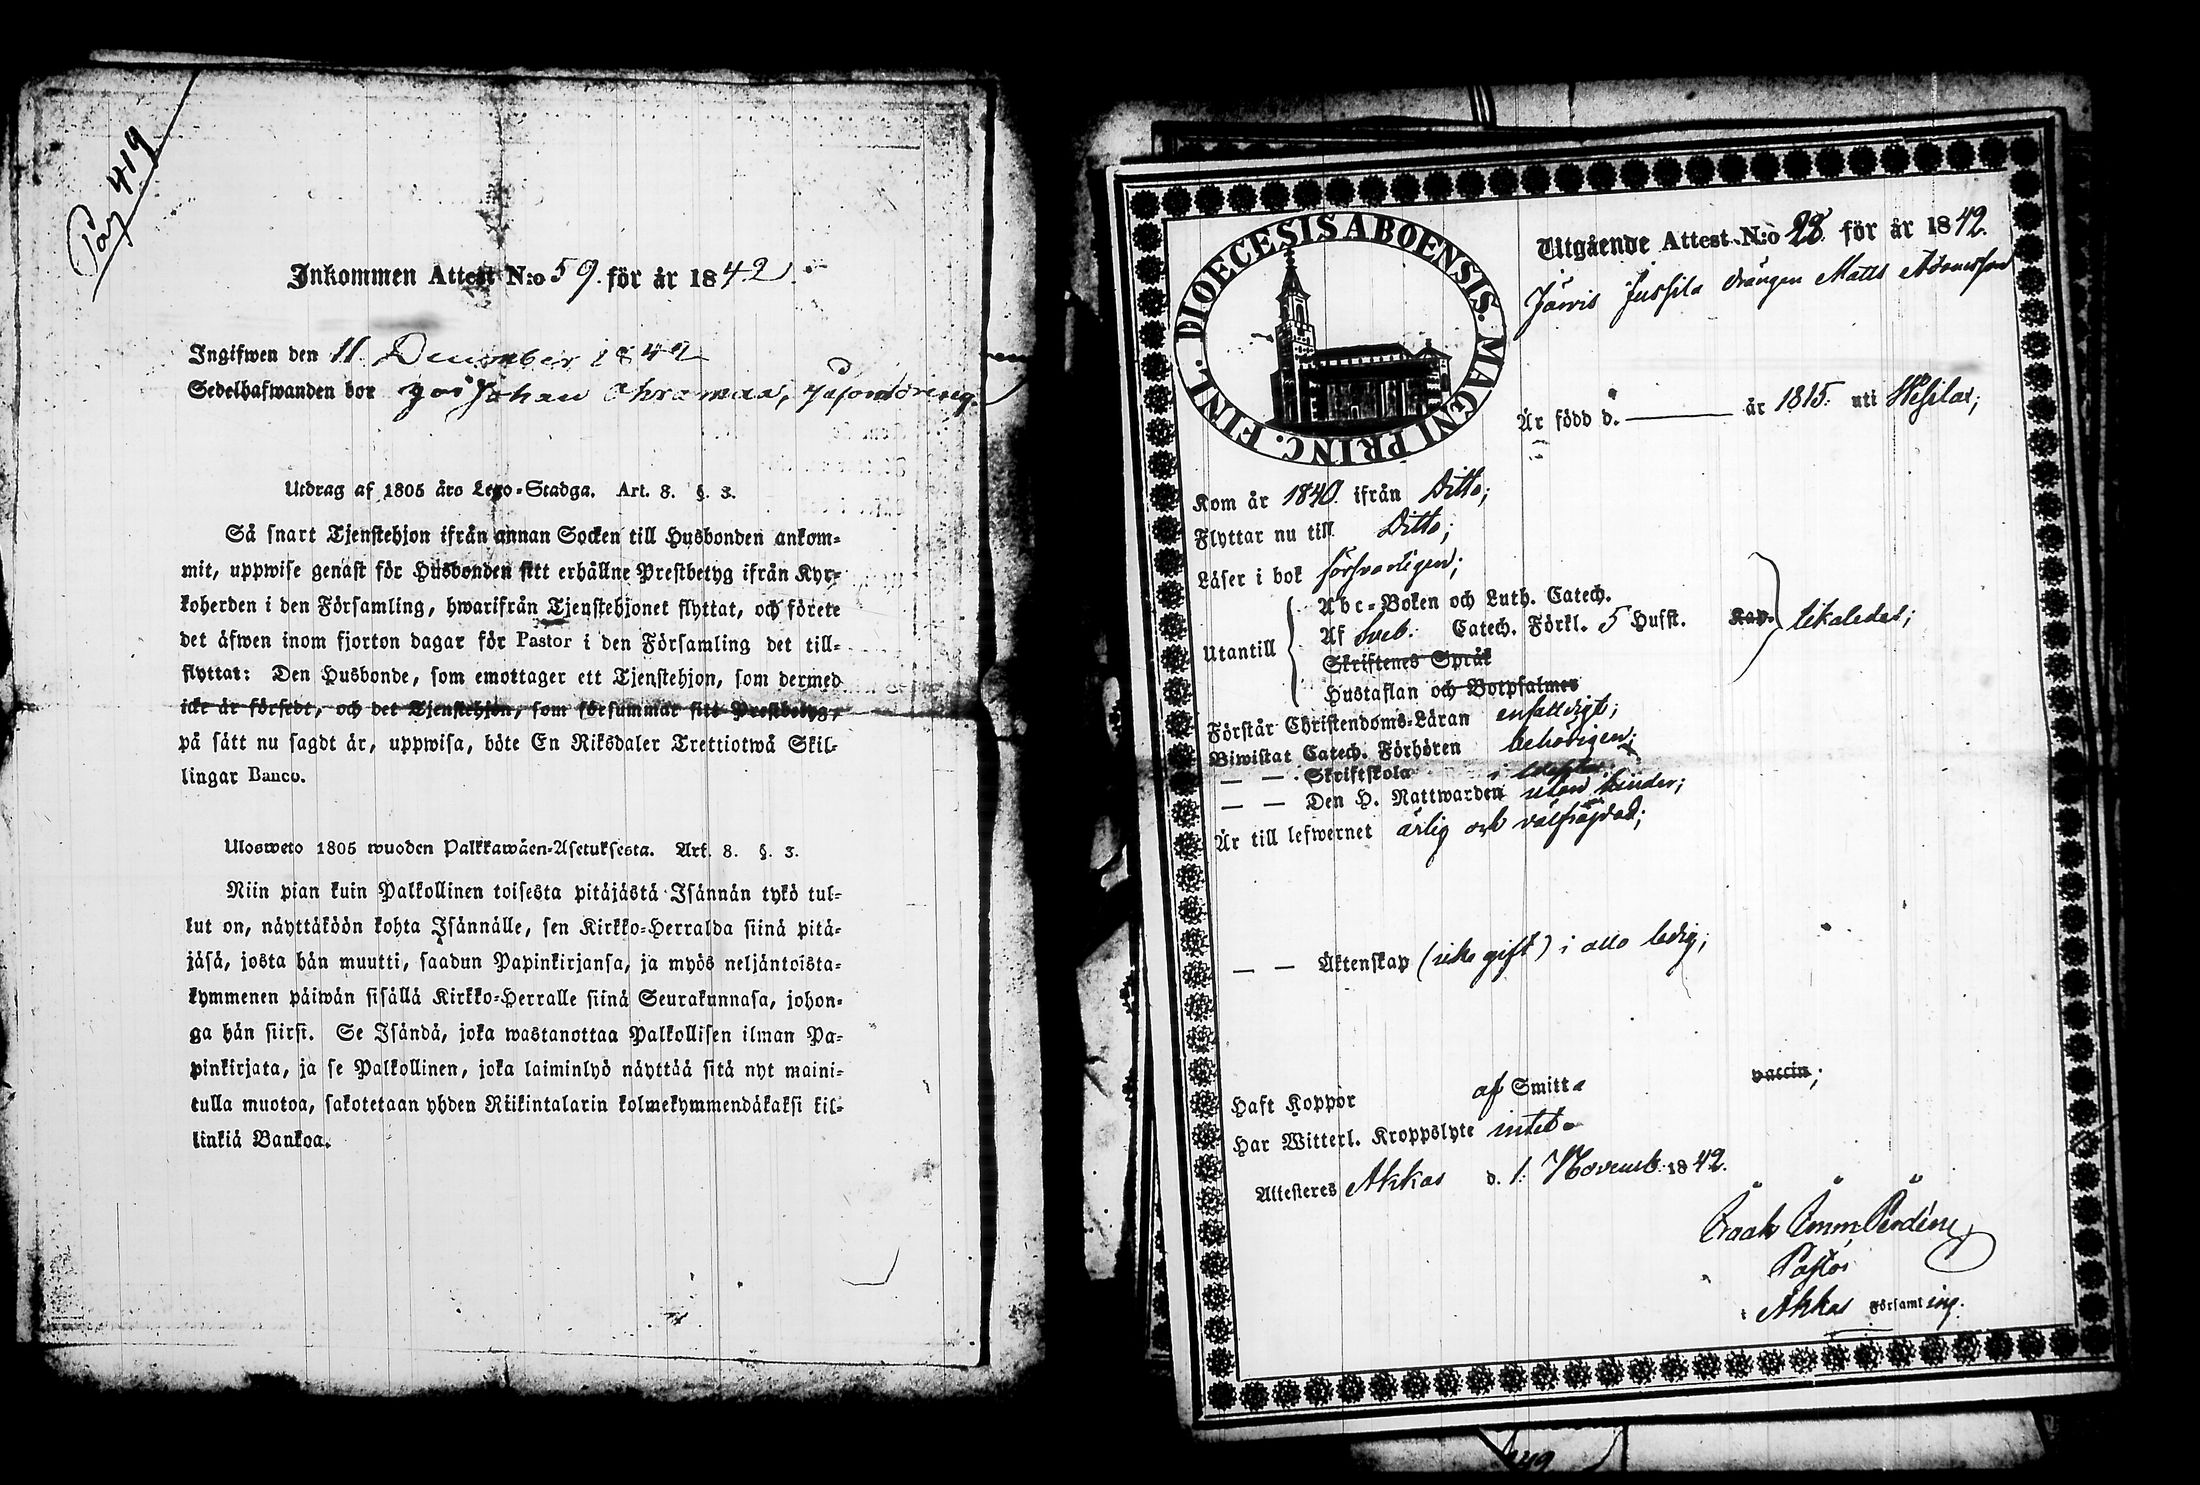 Pag 419
Inkommen Attest N:o 59. för år 1842.
Ingifwen den 11 December 1842
Sedelhafwanden bor Johan
Utdrag af 1805 års Lego-Stadga. Art. 8. §. 3.
Så snart Tjenstehjon ifrån annan Socken till Husbonden ankom-
mit, uppwise genast för Husbonden sitt erhållne Prestbetyg ifrån Kyr-
koherden i den Församling, hwarifrån Tjenstehjonet flyttat, och förete
det äfwen inom fjorton dagar för Pastor i den Församling det till-
flyttat: Den Husbonde, som emottager ett Tjenstehjon, som dermed
icke är försedt, och det Tjenstehjon, som försummar sitt Prestbetyg,
på sätt nu sagdt är, uppwisa, böte En Riksdaler Trettiotwå Skil-
lingar Banco.
Ulosweto 1805 wuoden Palkkawäen-Asetuksesta. Art. 8. §. 3.
Niin pian kuin Palkollinen toisesta pitäjästä Isännän tykö tul-
lut on, näyttäköön kohta Isännälle, sen Kirkko-Herralda siinä pitä-
jäsä, josta hän muutti, saadun Papinkirjansa, ja myös neljäntoista-
kymmenen päiwän sisällä Kirkko-Herralle siinä Seurakunnasa, johon-
ga hän siirsi. Se Isändä, joka wastanottaa Palkollisen ilman Pa-
pinkirjata, ja se Palkollinen, joka laiminlyö näyttää sitä nyt maini-
tulla muotoa, sakotetaan yhden Riikintalarin kolmekymmendäkaksi kil-
linkiä Bankoa.
DIOECESIS ABOENSIS. MAGNI PRINC. FINL.
Utgående Attest N:o 28. för år 1842.
Järvis Jussila drängen Matts Adamsson
Är född d. ——— år 1815. uti Wesilax;
Kom år 1840. ifrån Ditto;
Flyttar nu till Ditto;
Läser i bok försvarligen;
Utantill
Abc-Boken och Luth. Catech.
Af Sveb. Catech. Förkl. 5 Husst. Kap. likaledes;
Skriftenes Språk
Hustaflan och Botpsalmer
Förstår Christendoms-Läran enfaldigt;
Biwistat Catech. Förhören behörigen;
— — Skriftskola i
— — Den H. Nattwarden utan hinder;
Är till lefwernet ärlig och välfräjdad;
— — Äktenskap (icke gift) i allo ledig;
Haft Koppor af Smitta vaccin;
Har Witterl. Kroppslyte intet.
Attesteres Akkas d. 1. Novemb. 1842.
Pastor
i Akkas Församling.